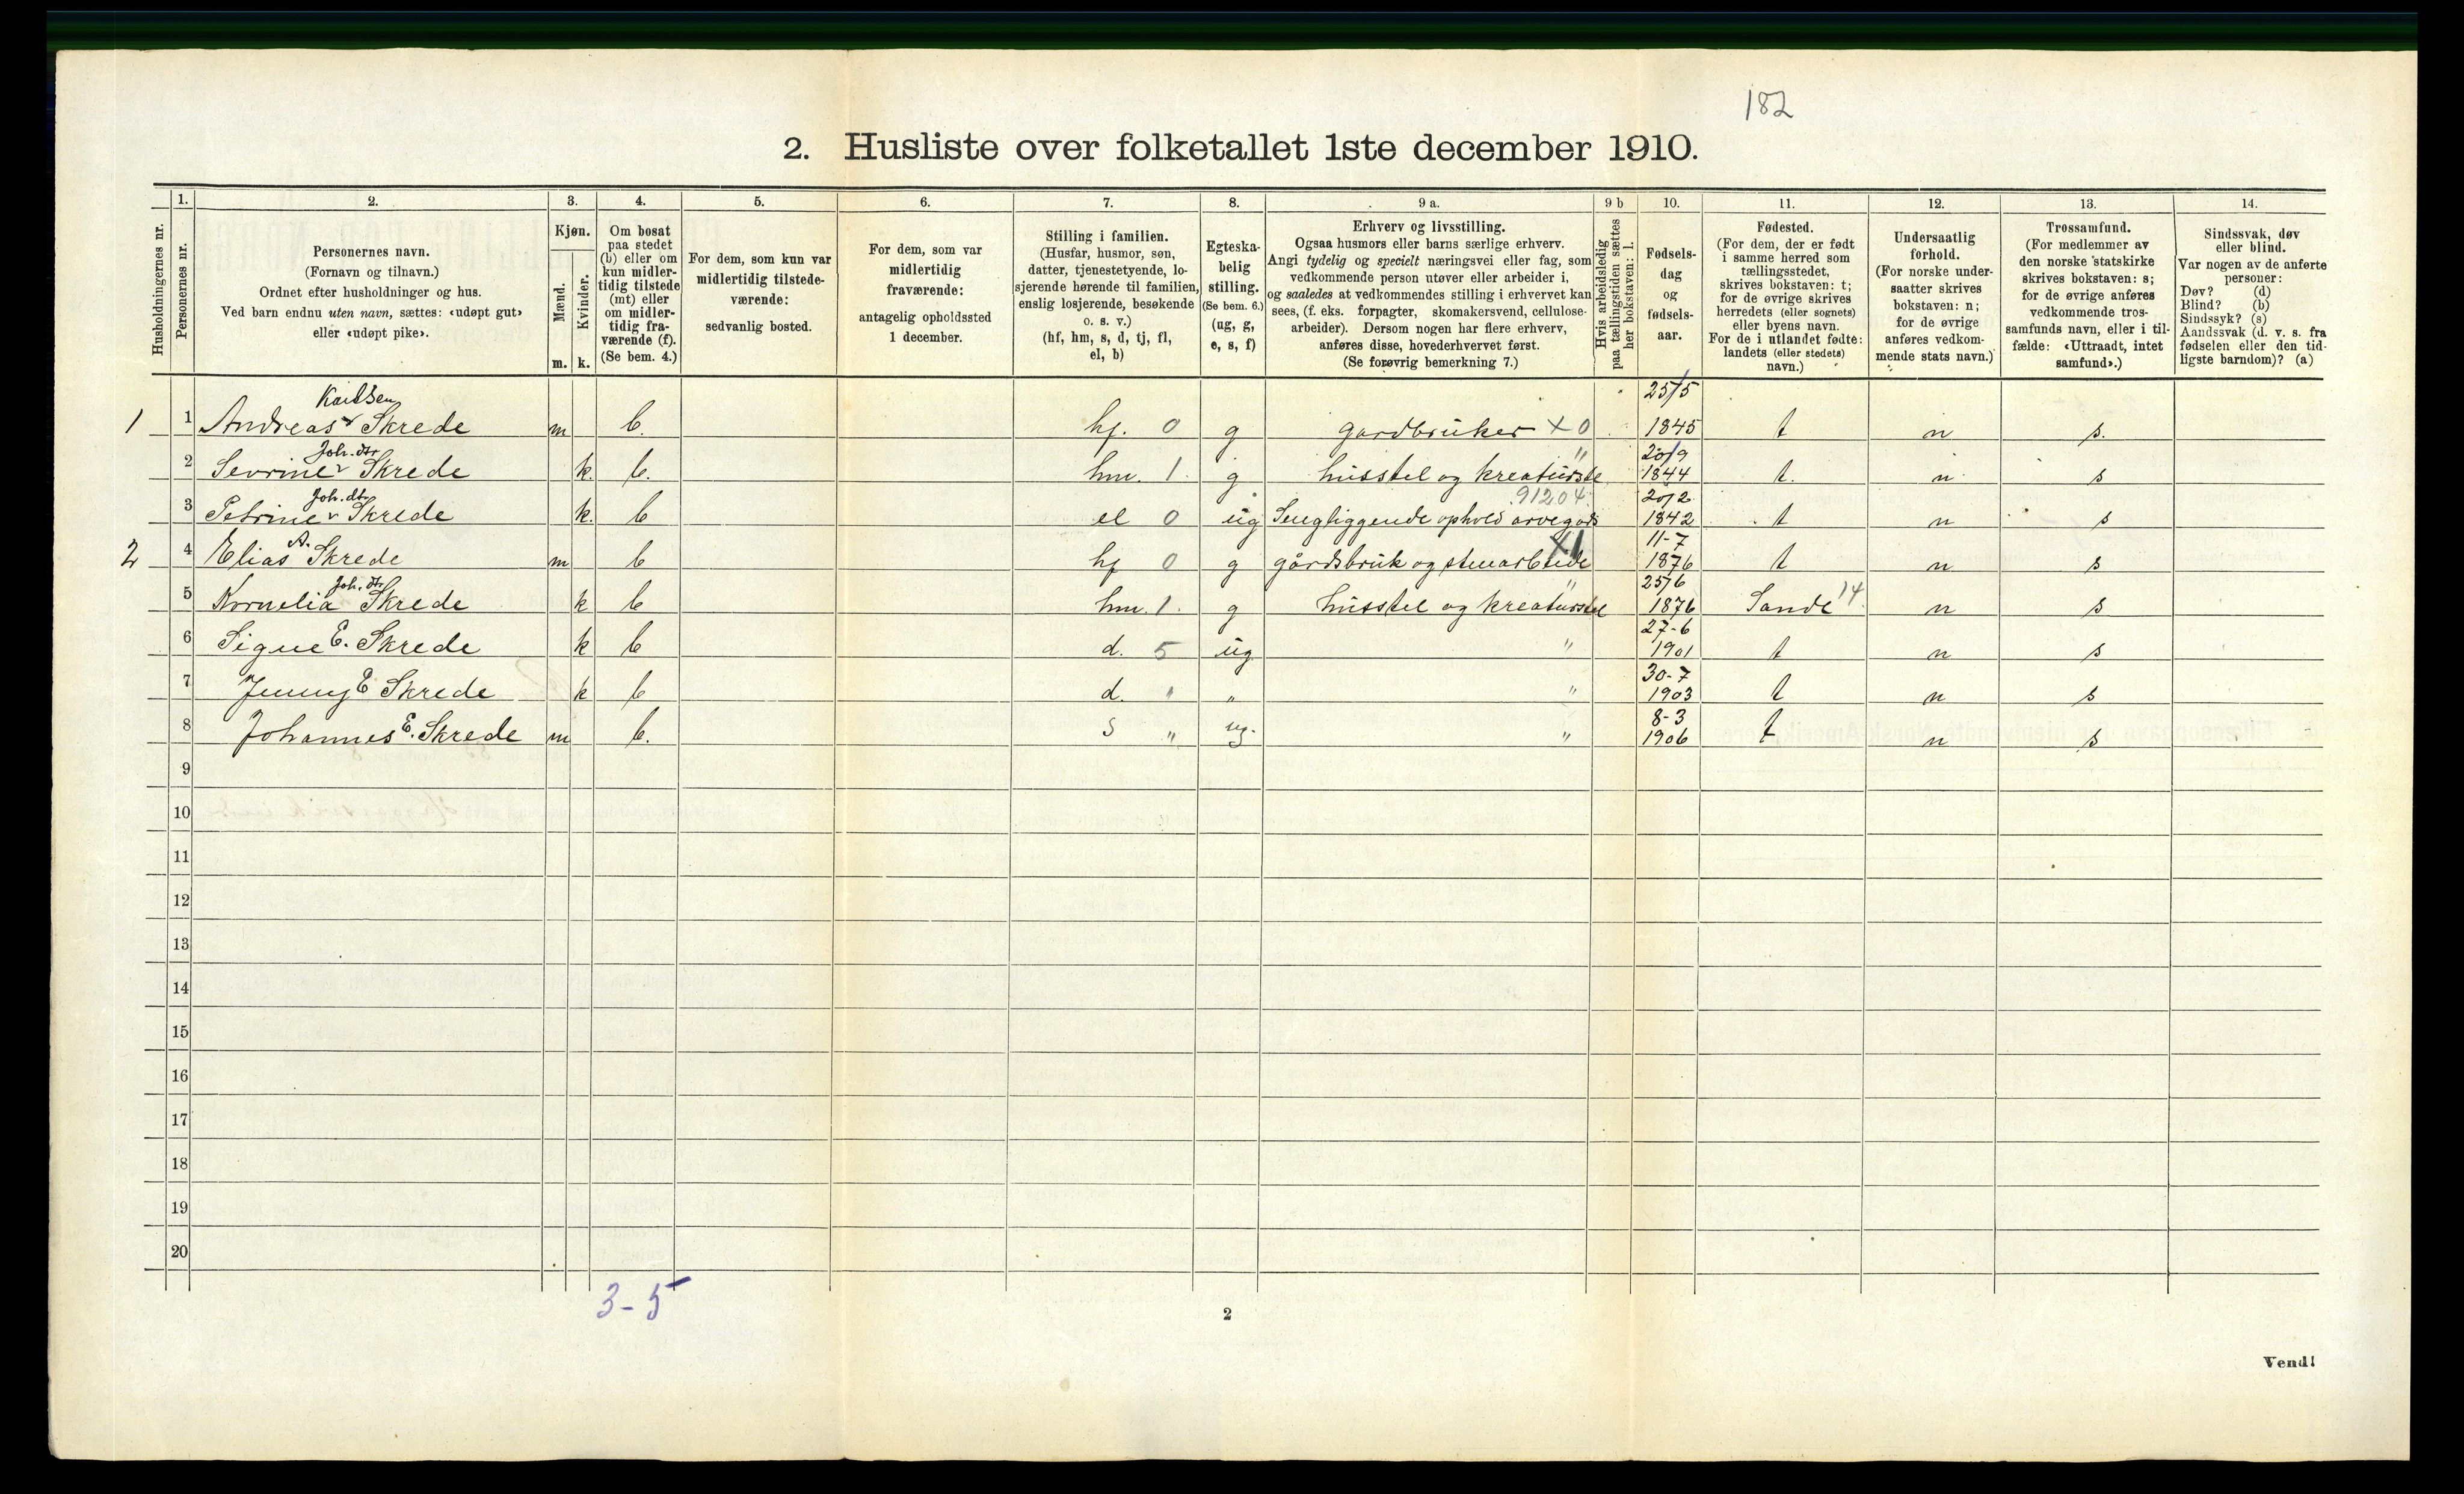 182
2. Husliste over folketallet 1ste december 1910.
Husholdningernes nr.
1.
Personernes nr.
2.
Personernes navn.
(Fornavn og tilnavn.)
Ordnet efter husholdninger og hus.
Ved barn endnu uten navn, sættes: «udøpt gut»
eller «udøpt pike».
3.
Kjøn.
Mænd.
Kvinder.
m. k.
4.
Om bosat
paa stedet
(b) eller om
kun midler-
tidig tilstede
(mt) eller
om midler-
tidig fra-
værende (f).
(Se bem. 4.)
5.
For dem, som kun var
midlertidig tilstede-
værende:
sedvanlig bosted.
6.
For dem, som var
midlertidig
fraværende:
antagelig opholdssted
1 december.
7.
Stilling i familien.
(Husfar, husmor, søn,
datter, tjenestetyende, lo-
sjerende hørende til familien,
enslig losjerende, besøkende
o. s. v.)
(hf, hm, s, d, tj, fl,
el, b)
8.
Egteska-
belig
stilling.
(Se bem. 6.)
(ug, g,
e, s, f)
9 a.
Erhverv og livsstilling.
Ogsaa husmors eller barns særlige erhverv.
Angi tydelig og specielt næringsvei eller fag, som
vedkommende person utøver eller arbeider i,
og saaledes at vedkommendes stilling i erhvervet kan
sees, (f. eks. forpagter, skomakersvend, cellulose-
arbeider). Dersom nogen har flere erhverv,
anføres disse, hovederhvervet først.
(Se forøvrig bemerkning 7.)
9 b
Hvis arbeidsledig
paa tællingstiden sættes
her bokstaven: l.
10.
Fødsels-
dag
og
fødsels-
aar.
11.
Fødested.
(For dem, der er født
i samme herred som
tællingsstedet,
skrives bokstaven: t;
for de øvrige skrives
herredets (eller sognets)
eller byens navn.
For de i utlandet fødte:
landets (eller stedets)
navn.)
12.
Undersaatlig
forhold.
(For norske under-
saatter skrives
bokstaven: n;
for de øvrige
anføres vedkom-
mende stats navn.)
13.
Trossamfund.
(For medlemmer av
den norske statskirke
skrives bokstaven: s;
for de øvrige anføres
vedkommende tros-
samfunds navn, eller i til-
fælde: «Uttraadt, intet
samfund».)
14.
Sindssvak, døv
eller blind.
Var nogen av de anførte
personer:
Døv? (d)
Blind? (b)
Sindssyk? (s)
Aandssvak (d. v. s. fra
fødselen eller den tid-
ligste barndom)? (a)
25/5
1 1 Andreas Skrede m b. hf. 0 g gardbruker X0 1845 t n s.
Joh. dtr 20/9
2 Sevrine Skrede k. b. hm. 1. g husstel og kreaturste " 1844 t. n s
Joh. dtr 91204 20/2
3 Petrine Skrede k. b el 0 ug Sengliggende ophold arvegods 1842 t n s
A. X1 11-7
2 4 Elias Skrede m b hf 0 g gårdsbruk og stenarbeide 1876 t n s
Joh. dtr 25/6
5 Kornelia Skrede k b hm. 1. g husstel og kreaturstel " 1876 Sande 14 n s
27-6
6 Signe E. Skrede k b d. 5 ug " 1901 t n s
30-7
7 Jenny E Skrede k b d. " " " 1903 t n s
8-3
8 Johannes E. Skrede m b. s " ug. " 1906 t n s
9
10
11
12
13
14
15
16
17
18
19
20
3-5
2
Vend!